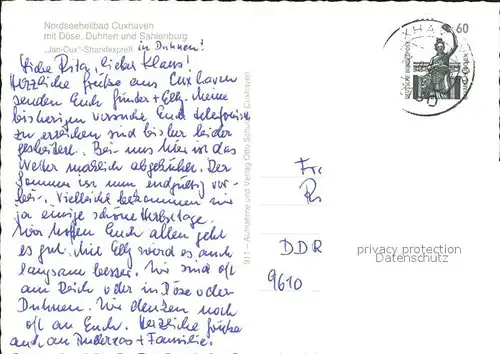 Nordseeheilbad Cuxhaven
mit Döse, Duhnen und Sahlenburg
„Jan-Cux"-Strandexpreß in Duhnen!
Liebe Rita, lieber Klaus!
Herzliche Grüße aus Cuxhaven
senden Euch Günter + Elly. Meine
bisherigen Versuche Euch telefonisch
zu erreichen sind bisher leider
gescheitert. Bei uns hier ist das
Wetter merklich abgekühlt. Der
Sommer ist nun endgültig vor-
bei. Vielleicht bekommen wir
ja einige schöne Herbsttage.
Wir hoffen Euch allen geht
es gut. Mit Elly wird es auch
langsam besser. Wir sind oft
am Deich oder in Döse oder
Duhnen. Wir denken noch
oft an Euch. Herzliche Grüße
auch an Andreas + Familie.
911 – Aufnahme und Verlag Otto Schulze, Cuxhaven
60
Fr
DDR
9610
privacy protection
Datenschutz